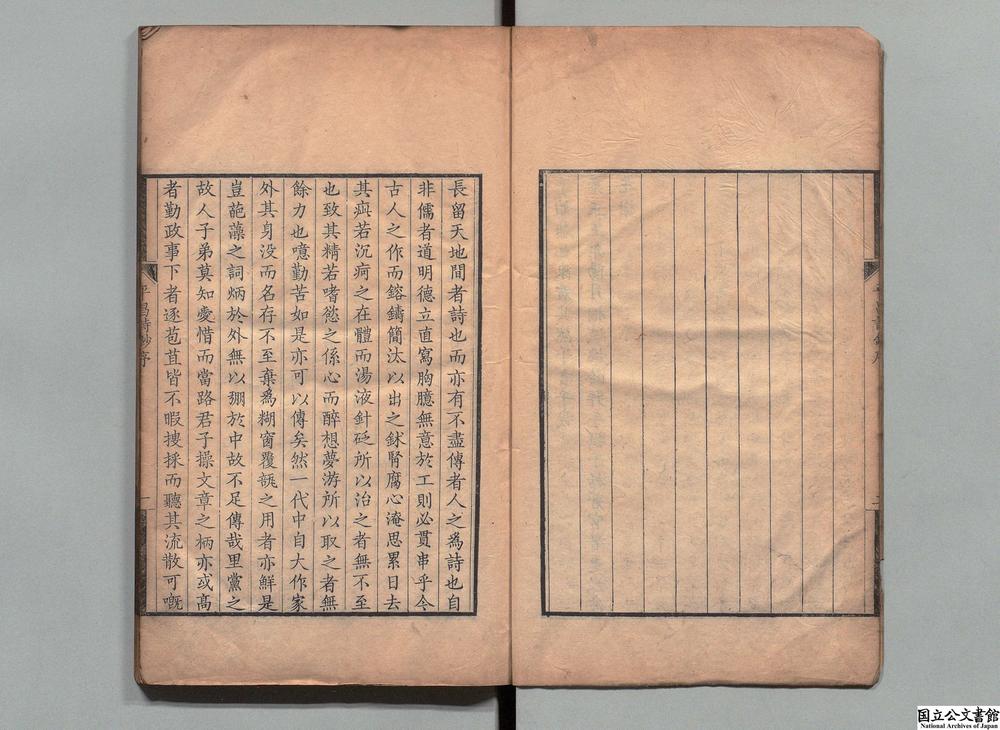 長留天地間者詩也而亦有不盡傳者人之為詩也自
非儒者道明德立直寫胸臆無意於工則必貫串乎今
古人之作而鎔鑄簡汰以出之鉥腎腐心淹思累日去
其病若沉疴之在體而湯液針砭所以治之者無不至
也致其精若嗜慾之係心而醉想夢游所以取之者無
餘力也噫勤苦如是亦可以傳矣然一代中自大作家
外其身没而名存不至棄為糊窗覆瓿之用者亦鮮是
豈葩藻之詞炳於外無以弸於中故不足傳哉里黨之
故人子弟莫知愛惜而當路君子操文章之柄亦或高
者勤政事下者逐苞苴皆不暇搜採而聽其流散可嘅
平昌詩鈔序
一
二
国立公文書館
National Archives of Japan